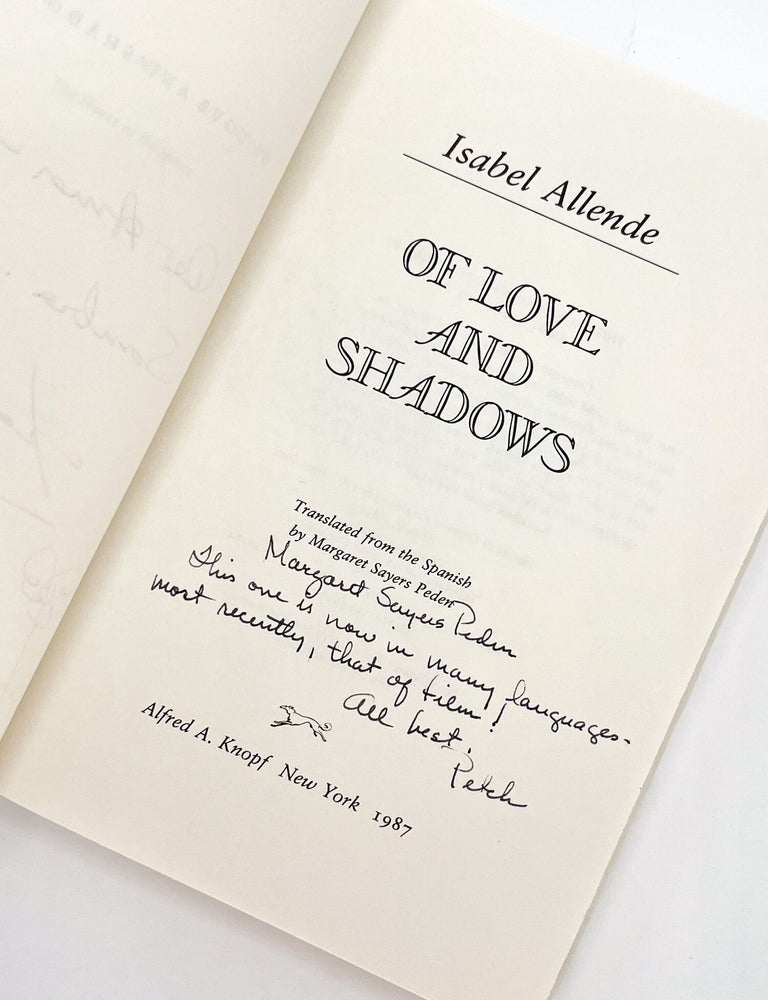 Isabel Allende
OF LOVE
AND
SHADOWS
Translated from the Spanish
by Margaret Sayers Peden
Margaret Sayers Peden
This one is now in many languages-
most recently, that of film!
All best,
Petch
Alfred A. Knopf New York 1987